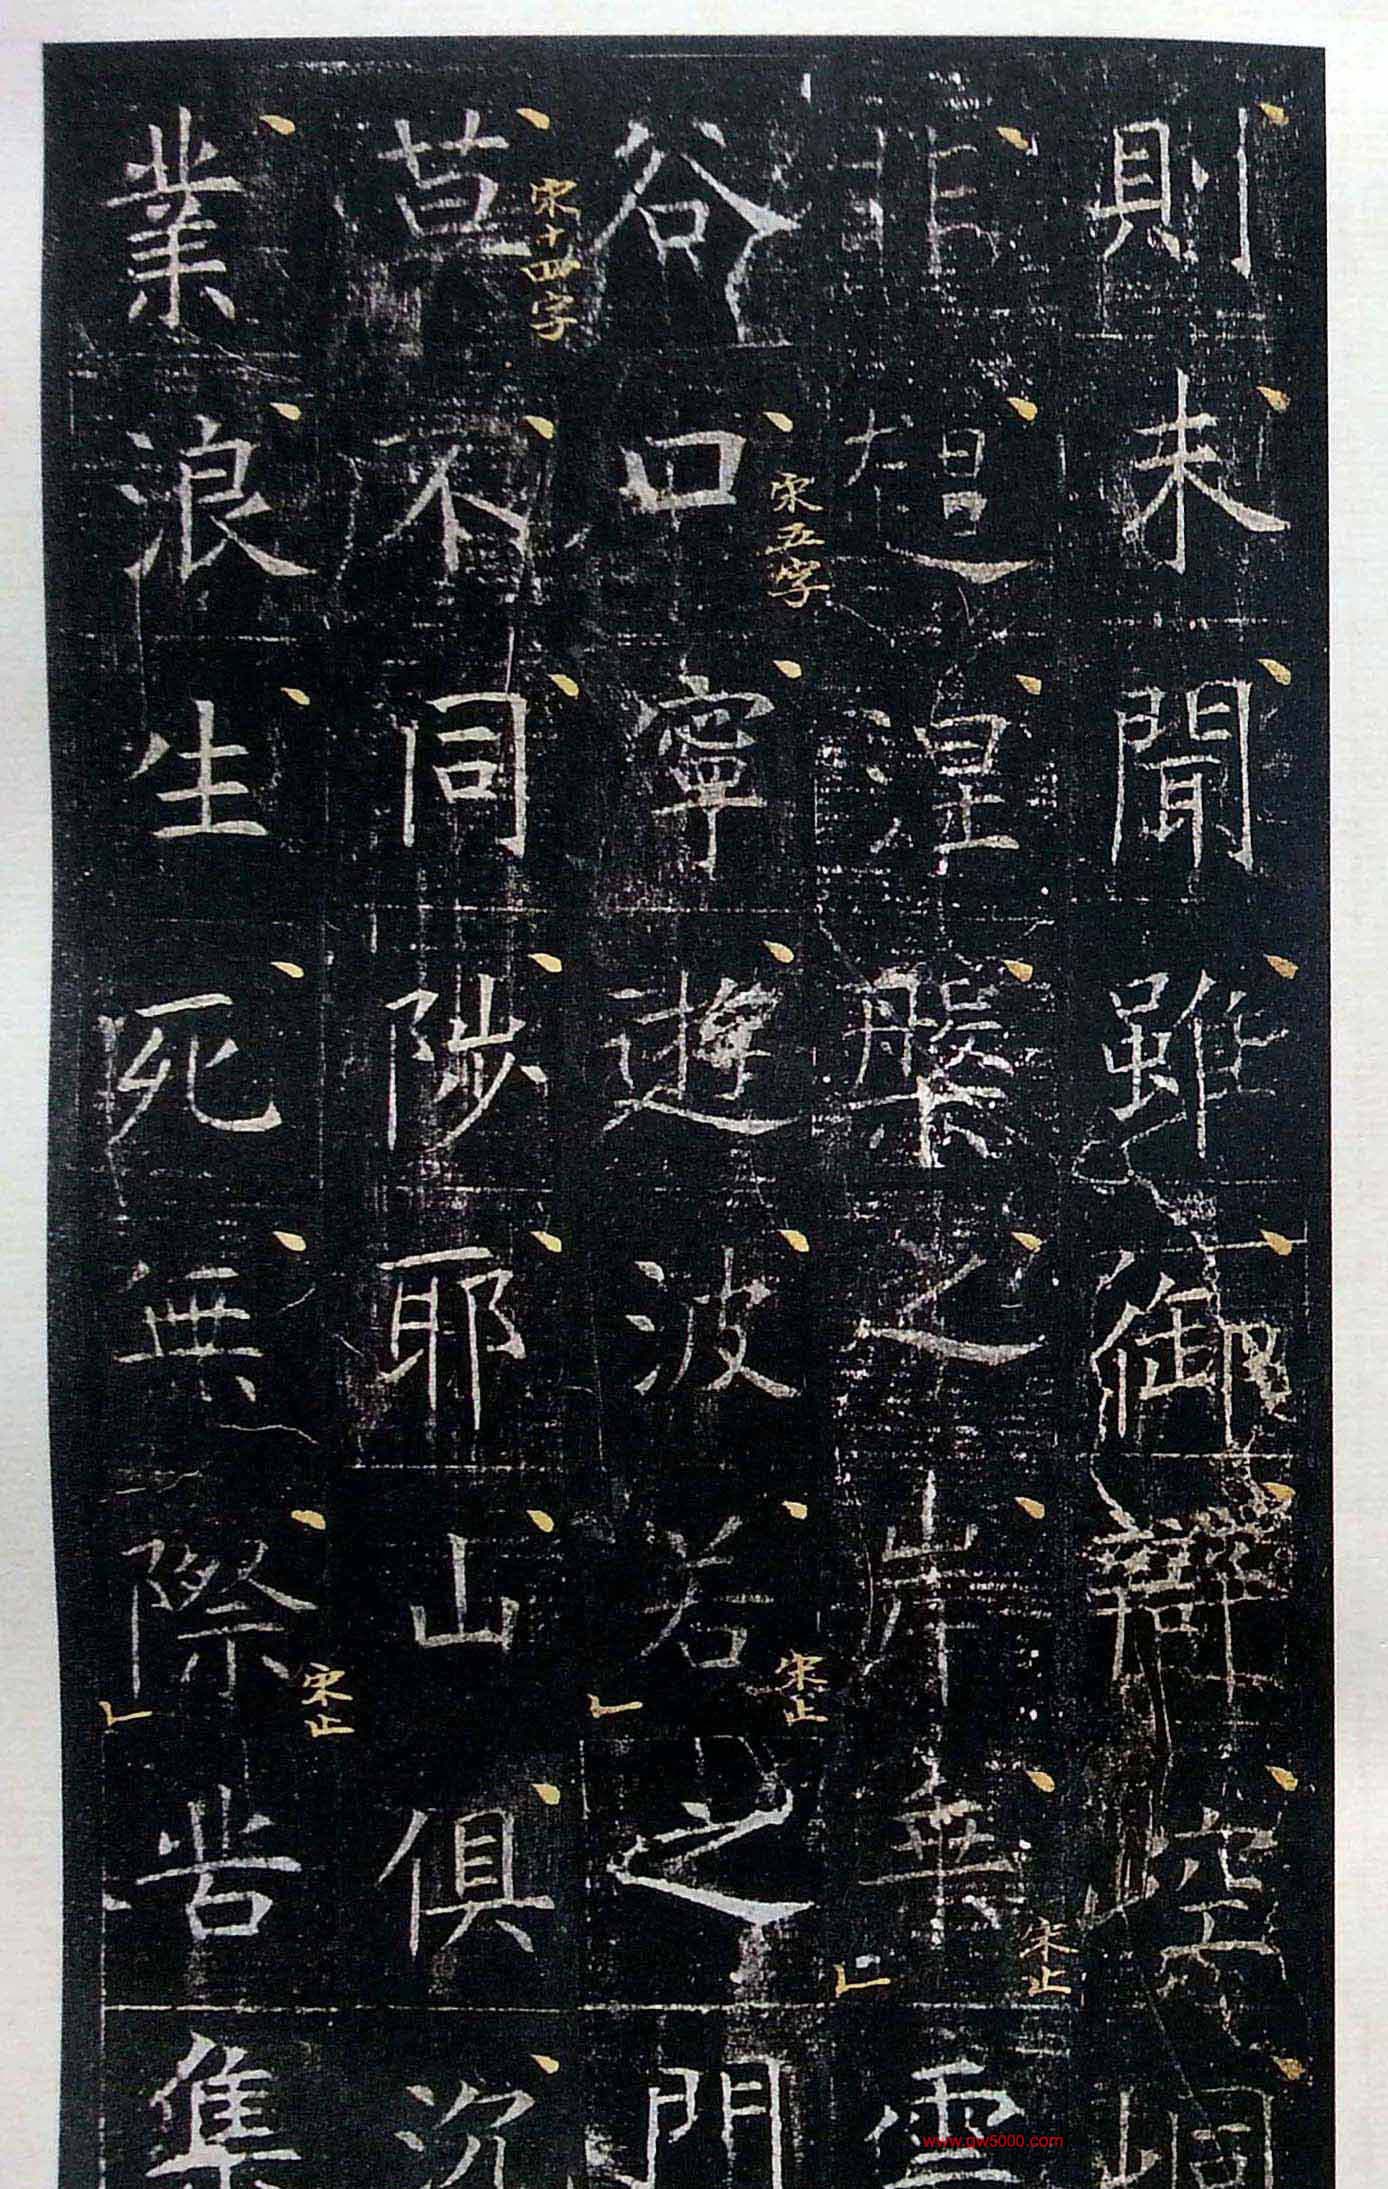 則未聞雖御辯崆峒
非超涅槃之岸無雲
宋止
谷口寧遊波若之門
宋五字
宋止
莫不同陟耶山俱沉
宋十四字
業浪生死無際苦集
宋止
www.gw5000.com